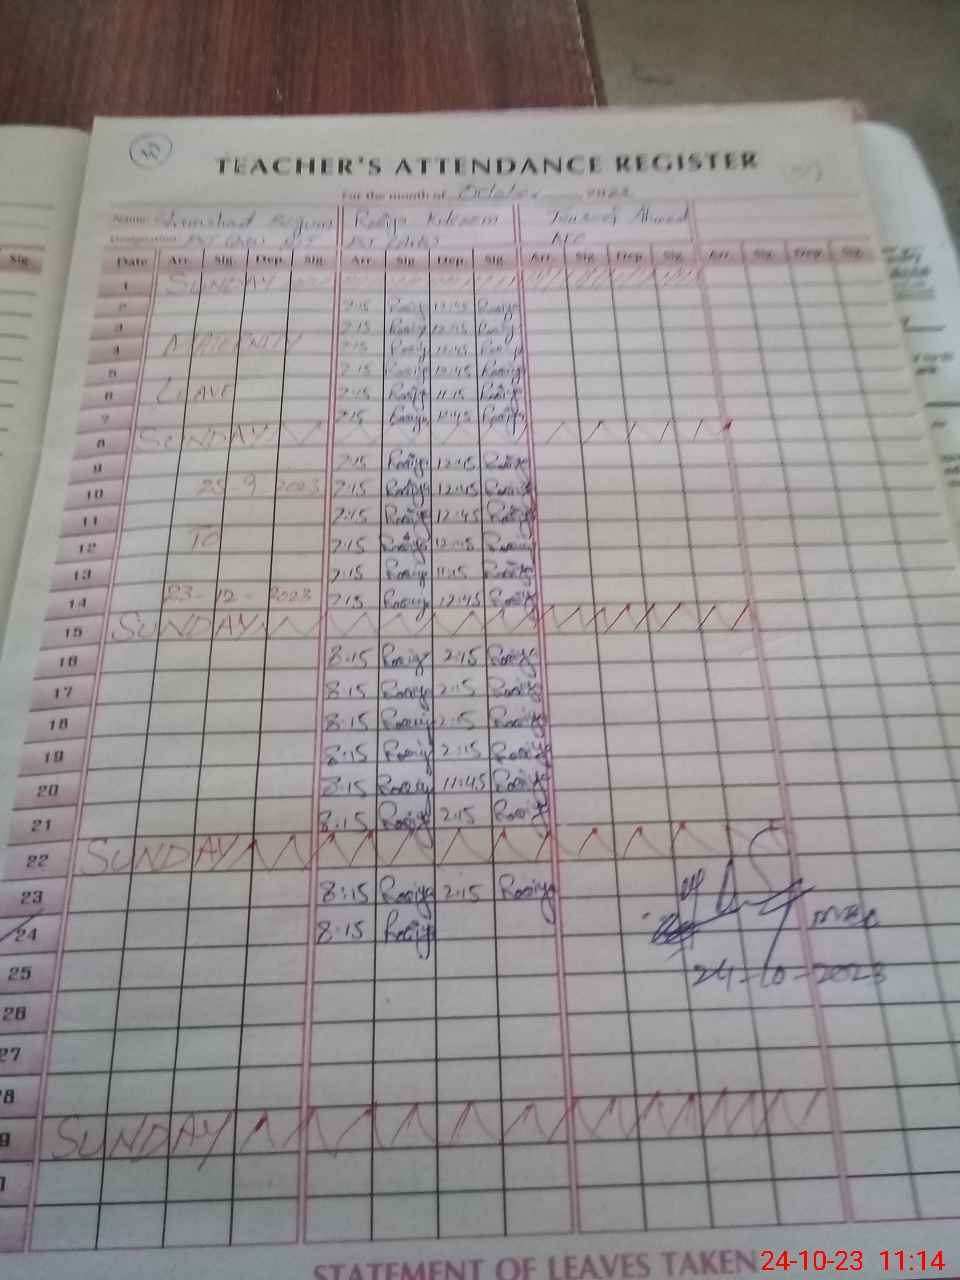 TEACHER'S ATTENDANCE REGISTER
For the month of October 2023
Name: Shamshad Begum Ahmad
Designation
Sig. Date Arr. Sig. Dep. Sig. Arr. Sig. Dep. Sig. Arr. Sig. Dep. Sig. Arr. Sig. Dep. Sig.
1 SUNDAY
2 7:15 Raziya 12:45 Raziya
3 7:15 Raziya 12:45 Raziya
4 MATERNITY 7:15 Raziya 12:45 Raziya
5 7:15 Raziya 12:45 Raziya
6 LEAVE 7:15 Raziya 11:15 Raziya
7 7:15 Raziya 12:45 Raziya
8 SUNDAY
9 7:15 Raziya 12:45 Raziya
10 25-9-2023 7:15 Raziya 12:45 Raziya
11 7:15 Raziya 12:45 Raziya
12 TO 7:15 Raziya 12:45 Raziya
13 7:15 Raziya 11:15 Raziya
14 23-12-2023 7:15 Raziya 12:45 Raziya
15 SUNDAY
16 8:15 Raziya 2:15 Raziya
17 8:15 Raziya 2:15 Raziya
18 8:15 Raziya 2:15 Raziya
19 8:15 Raziya 2:15 Raziya
20 8:15 Raziya 11:45 Raziya
21 8:15 Raziya 2:15 Raziya
22 SUNDAY
23 8:15 Raziya 2:15 Raziya
24 8:15 Raziya
24-10-2023
25
26
27
8
9 SUNDAY
STATEMENT OF LEAVES TAKEN
24-10-23 11:14